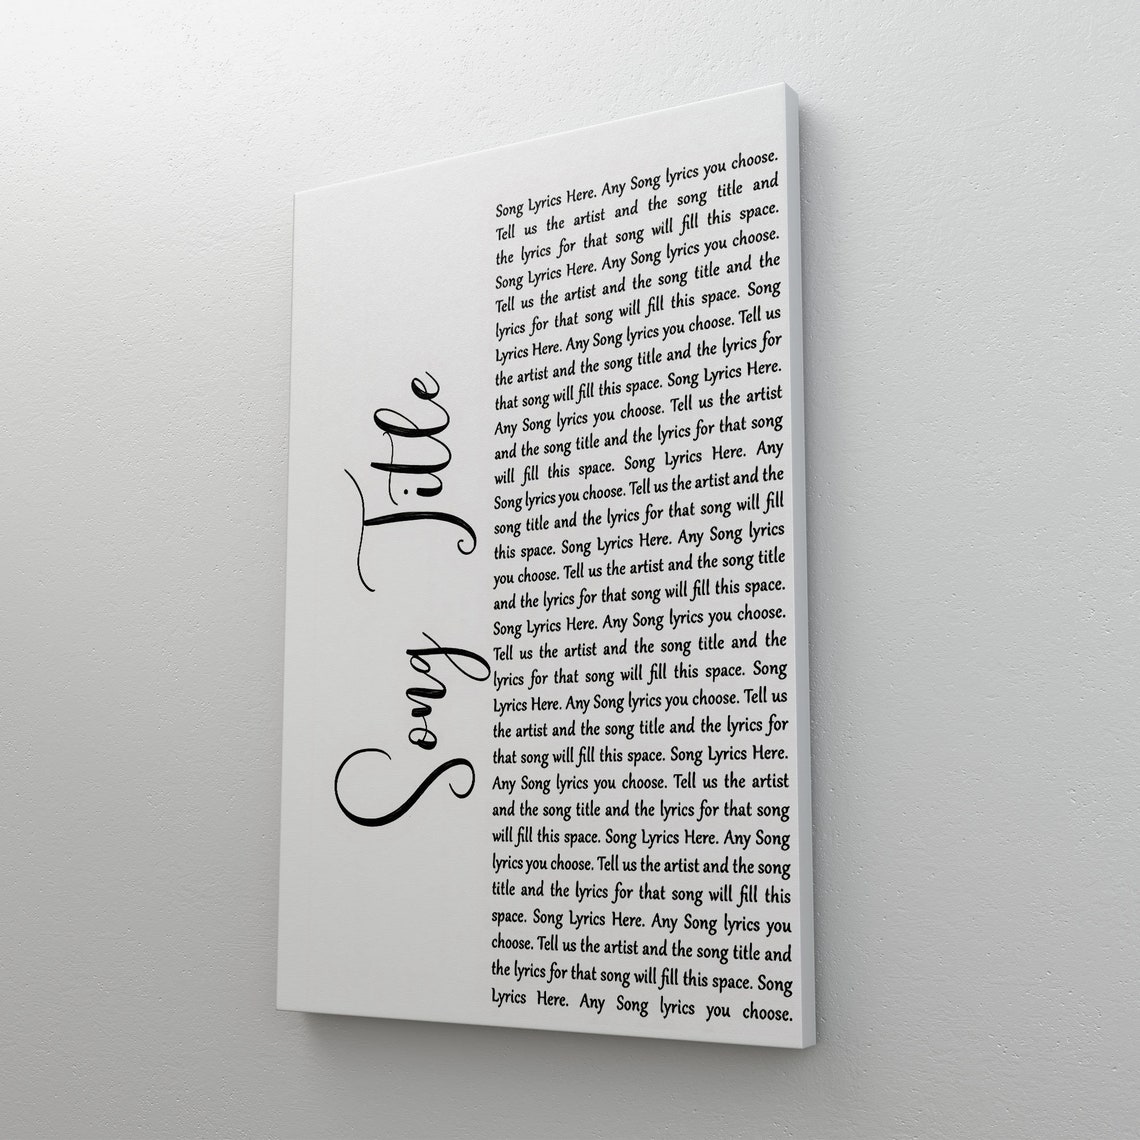 Song Title
Song Lyrics Here. Any Song lyrics you choose.
Tell us the artist and the song title and
the lyrics for that song will fill this space.
Song Lyrics Here. Any Song lyrics you choose.
Tell us the artist and the song title and the
lyrics for that song will fill this space. Song
Lyrics Here. Any Song lyrics you choose. Tell us
the artist and the song title and the lyrics for
that song will fill this space. Song Lyrics Here.
Any Song lyrics you choose. Tell us the artist
and the song title and the lyrics for that song
will fill this space. Song Lyrics Here. Any
Song lyrics you choose. Tell us the artist and the
song title and the lyrics for that song will fill
this space. Song Lyrics Here. Any Song lyrics
you choose. Tell us the artist and the song title
and the lyrics for that song will fill this space.
Song Lyrics Here. Any Song lyrics you choose.
Tell us the artist and the song title and the
lyrics for that song will fill this space. Song
Lyrics Here. Any Song lyrics you choose. Tell us
the artist and the song title and the lyrics for
that song will fill this space. Song Lyrics Here.
Any Song lyrics you choose. Tell us the artist
and the song title and the lyrics for that song
will fill this space. Song Lyrics Here. Any Song
lyrics you choose. Tell us the artist and the song
title and the lyrics for that song will fill this
space. Song Lyrics Here. Any Song lyrics you
choose. Tell us the artist and the song title and
the lyrics for that song will fill this space. Song
Lyrics Here. Any Song lyrics you choose.